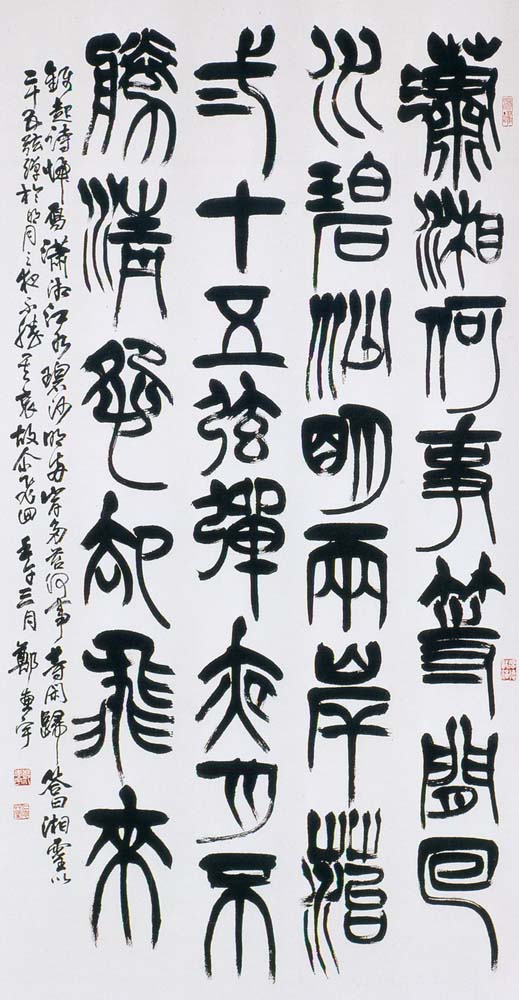 瀟湘何事等閒回
水碧沙明兩岸菭
弍十五弦彈夜月不
勝清怨却飛來
錢起詩寫瀟湘江水碧沙明兩岸多苔何事等閒歸答曰湘靈以
二十五弦彈於明月之夜不勝其哀故余飛回 壬午三月 鄭宇